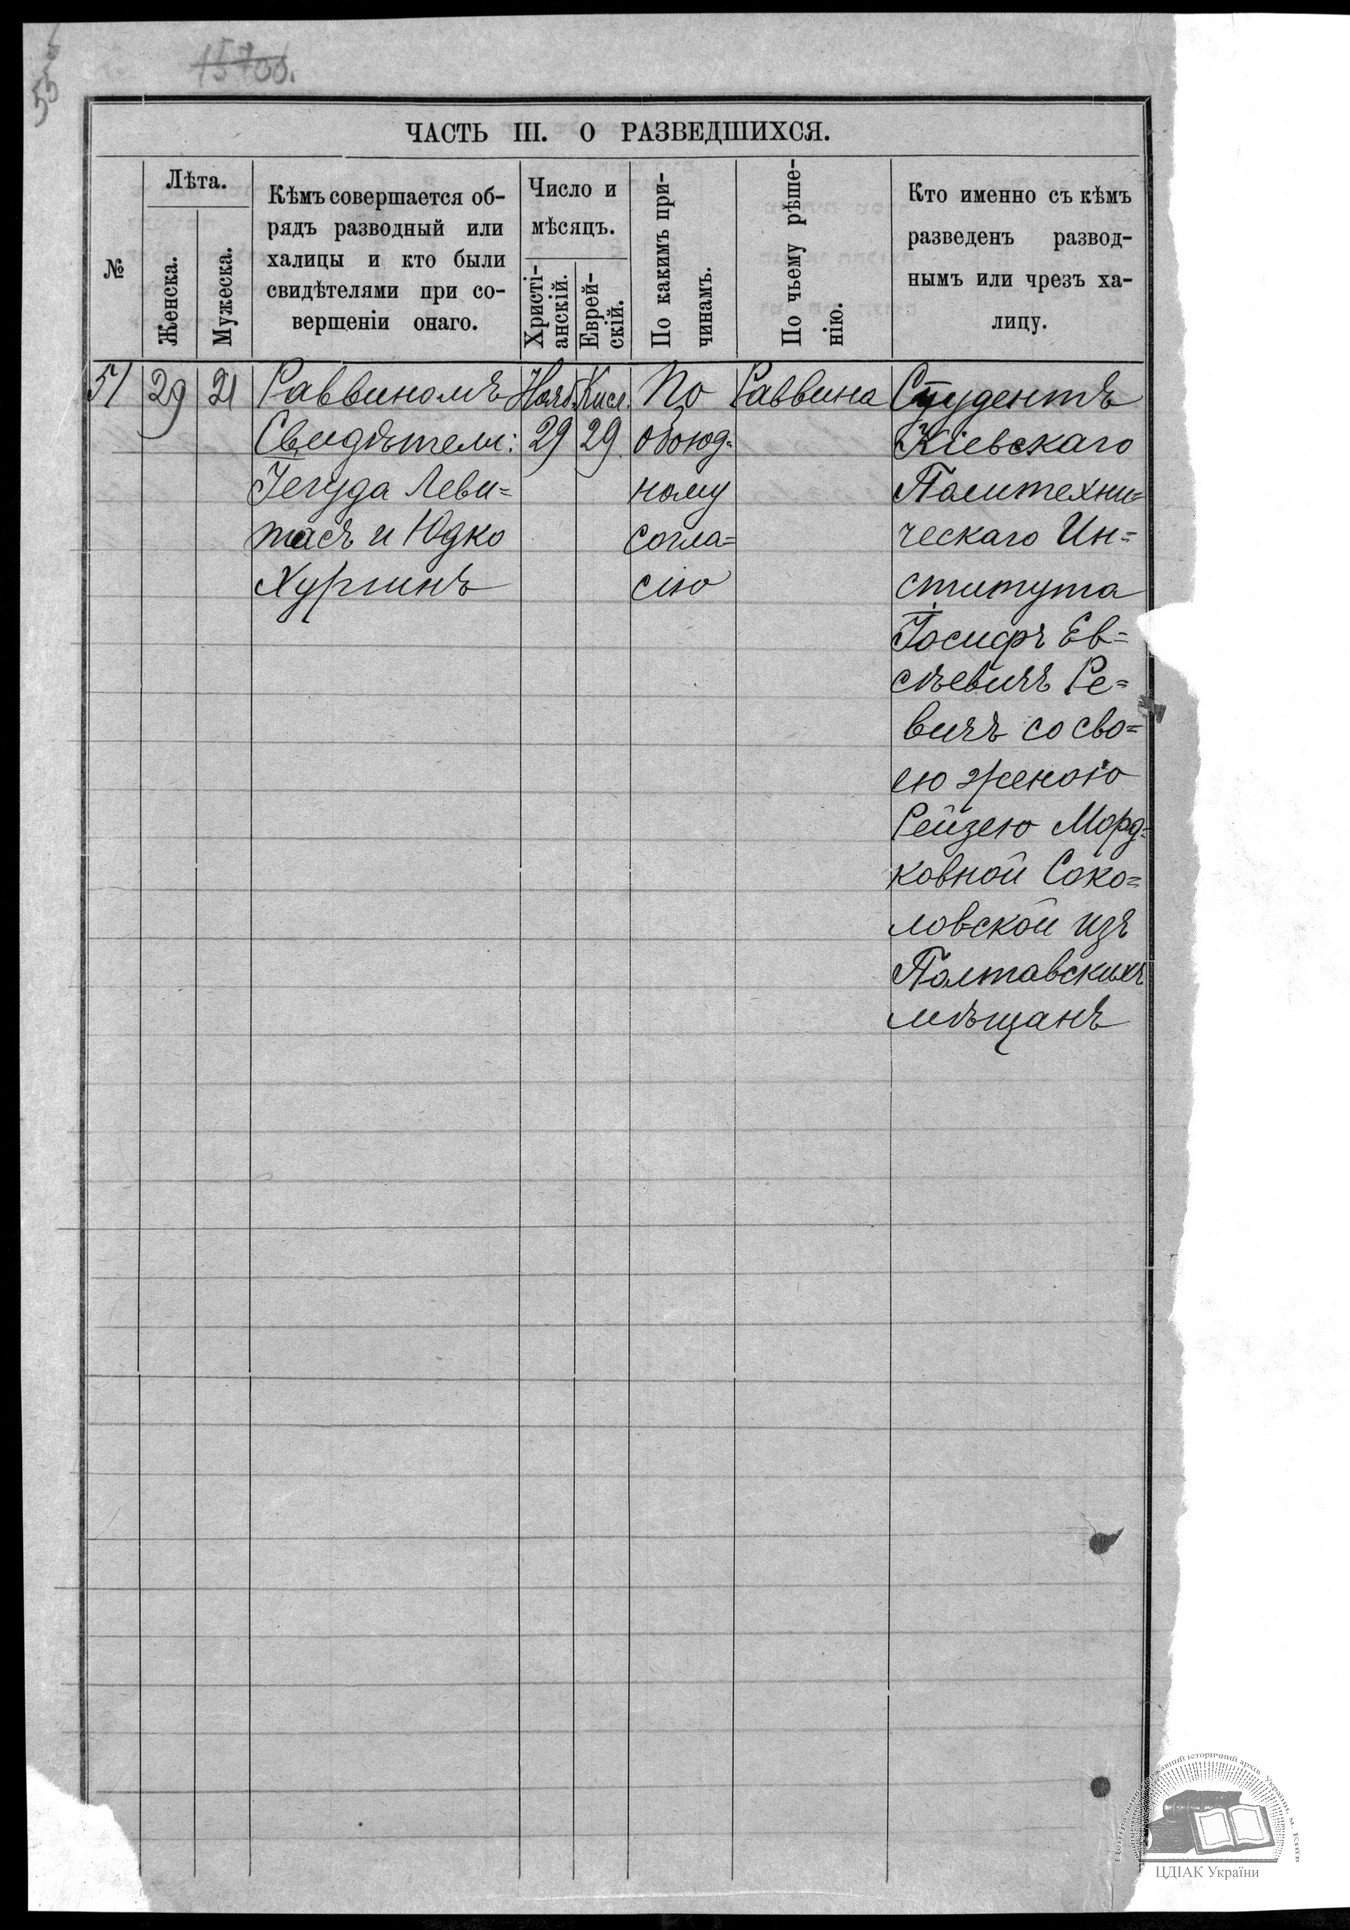 55
15706.
ЧАСТЬ III. О РАЗВЕДШИХСЯ.
№
Лѣта.
Женска.
Мужеска.
Кѣмъ совершается об-
рядъ разводный или
халицы и кто были
свидѣтелями при со-
вершеніи онаго.
Число и
мѣсяцъ.
Христі-
анскій.
Еврей-
скій.
По какимъ при-
чинамъ.
По чьему рѣше-
нію.
Кто именно съ кѣмъ
разведенъ развод-
нымъ или чрезъ ха-
лицу.
51
29
21
Раввиномъ
Свидѣтели:
Іегуда Леви=
тасъ и Юдко
Хургинъ
Нояб.
29
Кисл.
29
По
обоюд=
ному
согла=
сію
Раввина
Студентъ
Кіевскаго
Политехни=
ческаго Ин=
ститута
Іосифъ Ев=
сѣевичъ Ре=
вичъ со сво=
ею женою
Рейзею Морд=
ковной Соко=
ловской изъ
Полтавскихъ
мѣщанъ
ЦДІАК України